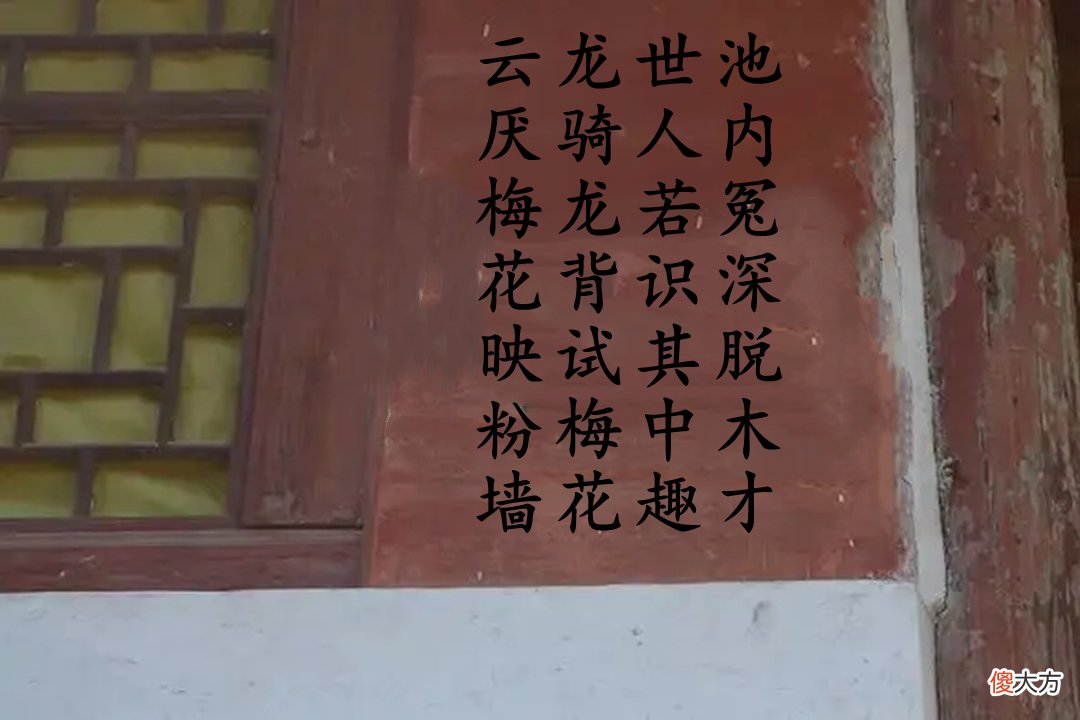 池内冤深脱木才
世人若识其中趣
龙骑龙背试梅花
云厌梅花映粉墙
傻大方